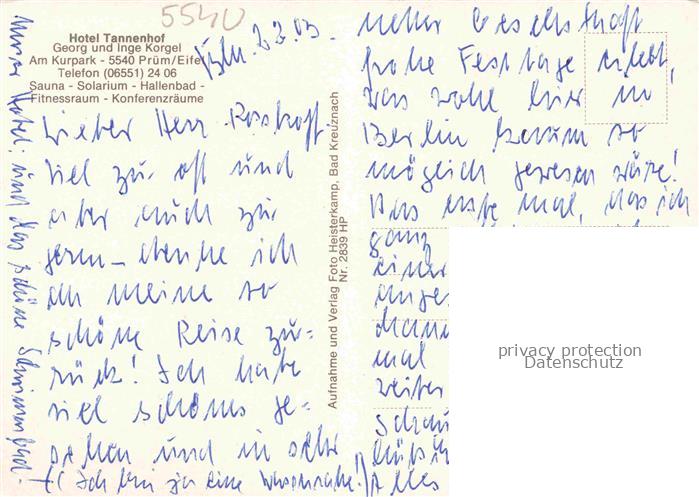 5540
Hotel Tannenhof
Georg und Inge Korgel
Am Kurpark - 5540 Prüm/Eifel
Telefon (06551) 24 06
Sauna - Solarium - Hallenbad -
Fitnessraum - Konferenzräume
Bln. 2.2.03.
Lieber Herr Rosskopf
viel zu oft und
aber auch zu
gern – denke ich
an meine so
schöne Reise zu-
rück! Ich habe
viel schönes ge-
sehen und in sehr
netter Gesellschaft
frohe Festtage erlebt,
was wohl hier in
Berlin kaum so
möglich gewesen wäre!
Das erste mal, das ich
ganz
einer
anges
dann
mal
weiter
schau
Alles
(Ich bin ja eine Wasserratte!)
Unser Hotel, und das schöne Schwimmbad.
Aufnahme und Verlag Foto Heisterkamp, Bad Kreuznach
Nr. 2839 HP
privacy protection
Datenschutz